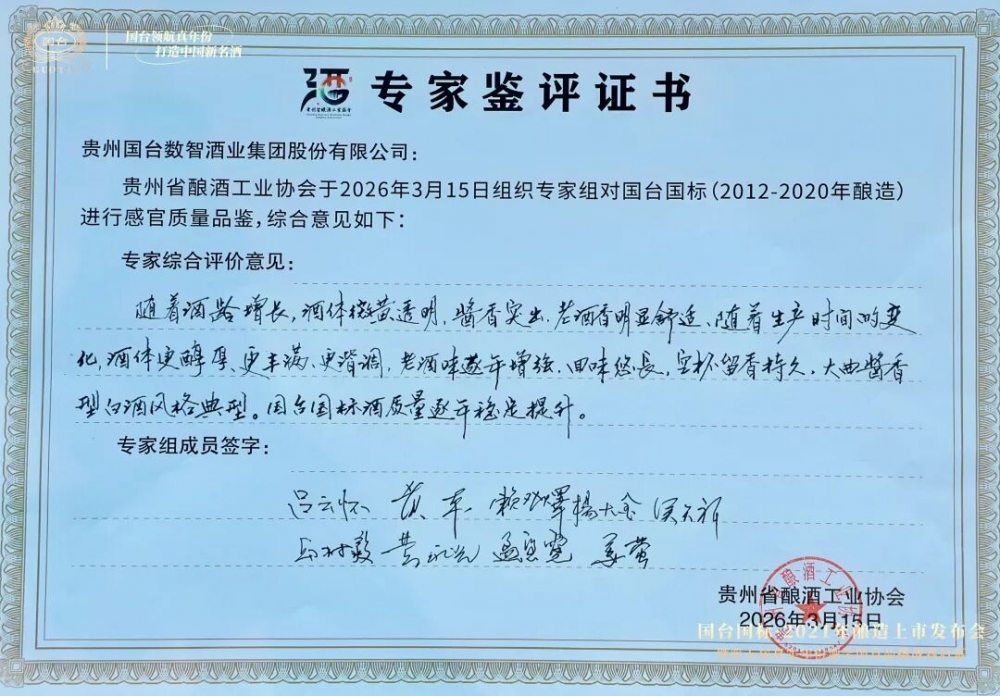 国台
GUOTAI
国台领航真年份
打造中国新名酒
专家鉴评证书
贵州省酿酒工业协会
贵州国台数智酒业集团股份有限公司：
贵州省酿酒工业协会于2026年3月15日组织专家组对国台国标（2012-2020年酿造）
进行感官质量品鉴，综合意见如下：
专家综合评价意见：
随着酒龄增长，酒体微黄透明，酱香突出、老酒香明显舒适、随着生产时间的变
化，酒体更醇厚、更丰满、更谐调，老酒味逐年增强，回味悠长，空杯留香持久，大曲酱香
型白酒风格典型。国台国标酒质量逐年稳定提升。
专家组成员签字：
吕云怀 黄 军 杨大金
黄永光 孟望霓
贵州省酿酒工业协会
2026年3月15日
国台国标·2021年酿造上市发布会